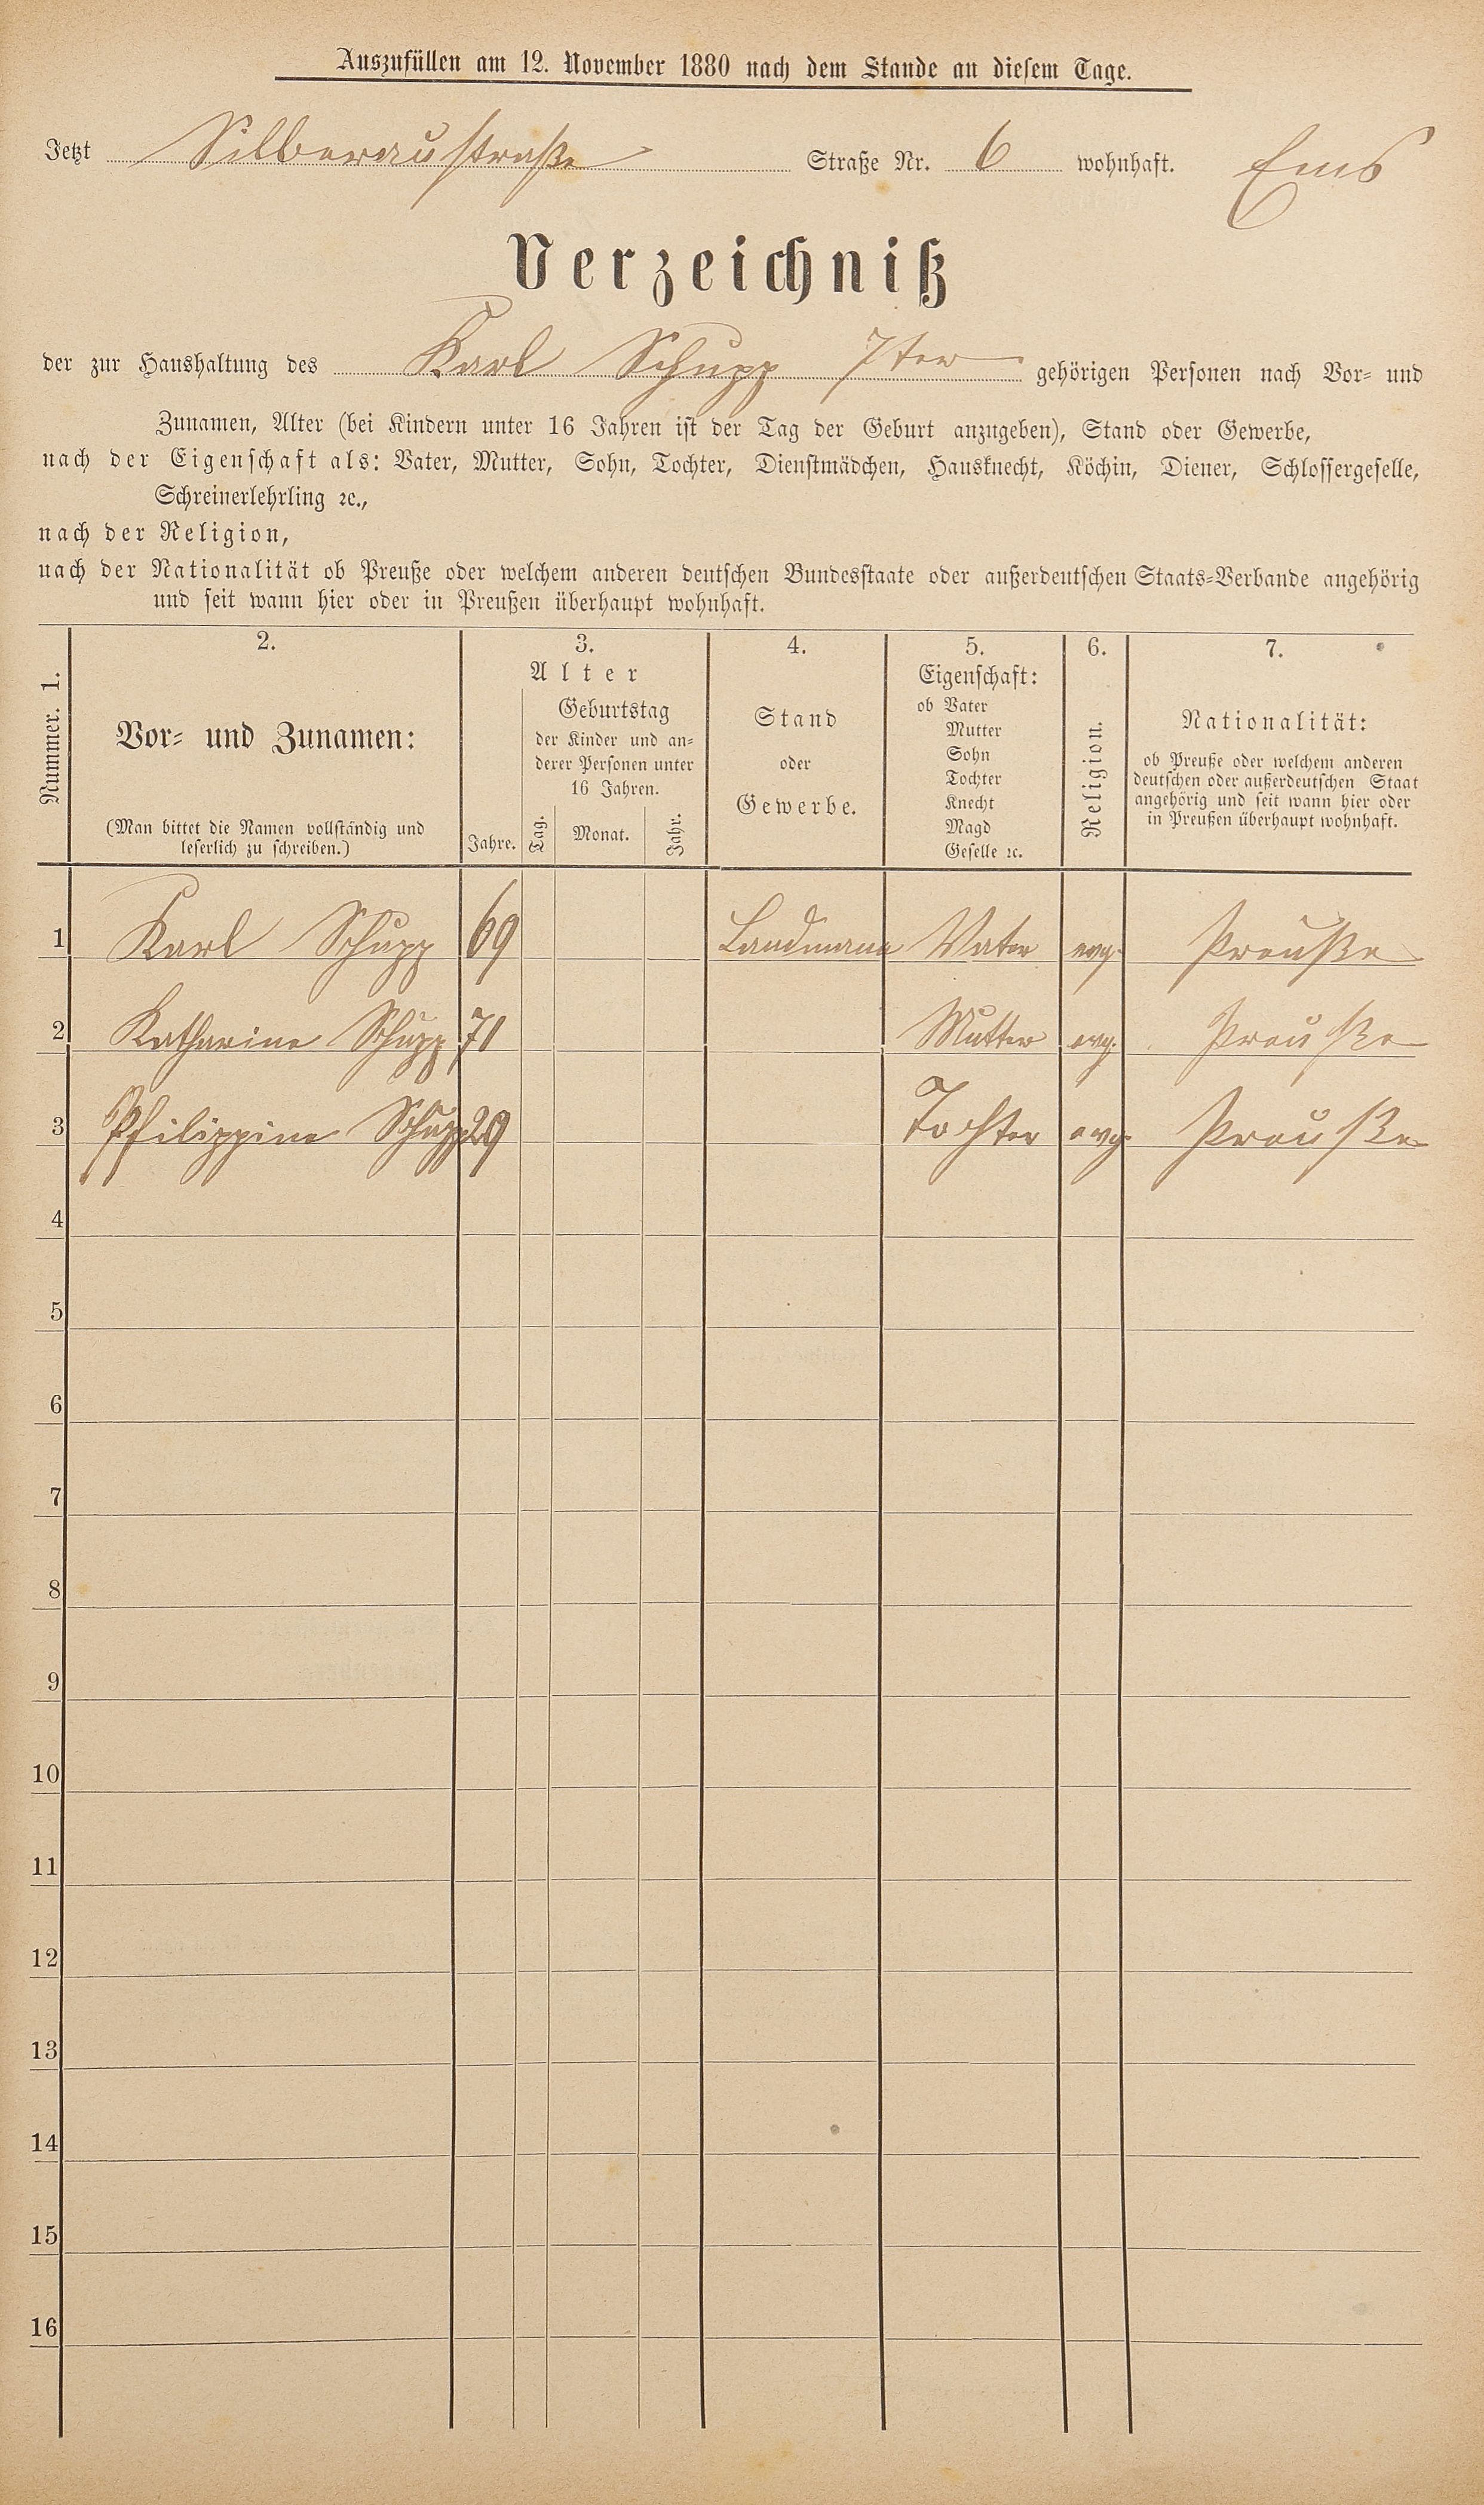 Auszufüllen am 12. November 1880 nach dem Stande an diesem Tage.
Jetzt Silberaustraße Straße Nr. 6 wohnhaft. Ems
Verzeichniß
der zur Haushaltung des Karl Schupp 7ter gehörigen Personen nach Vor- und
Zunamen, Alter (bei Kindern unter 16 Jahren ist der Tag der Geburt anzugeben), Stand oder Gewerbe,
nach der Eigenschaft als: Vater, Mutter, Sohn, Tochter, Dienstmädchen, Hausknecht, Köchin, Diener, Schlossergeselle,
Schreinerlehrling ꝛc.,
nach der Religion,
nach der Nationalität ob Preuße oder welchem anderen deutschen Bundesstaate oder außerdeutschen Staats-Verbande angehörig
und seit wann hier oder in Preußen überhaupt wohnhaft.
Nummer. 1.
2.
Vor- und Zunamen:
(Man bittet die Namen vollständig und
leserlich zu schreiben.)
3.
Alter
Jahre.
Geburtstag
der Kinder und an-
derer Personen unter
16 Jahren.
Tag.
Monat.
Jahr.
4.
Stand
oder
Gewerbe.
5.
Eigenschaft:
ob Vater
Mutter
Sohn
Tochter
Knecht
Magd
Geselle ꝛc.
6.
Religion.
7.
Nationalität:
ob Preuße oder welchem anderen
deutschen oder außerdeutschen Staat
angehörig und seit wann hier oder
in Preußen überhaupt wohnhaft.
1 Karl Schupp 69 Landmann Vater evg. Preuße
2 Katharine Schupp 71 Mutter evg. Preuße
3 Philippine Schupp 29 Tochter evg. Preuße
4
5
6
7
8
9
10
11
12
13
14
15
16